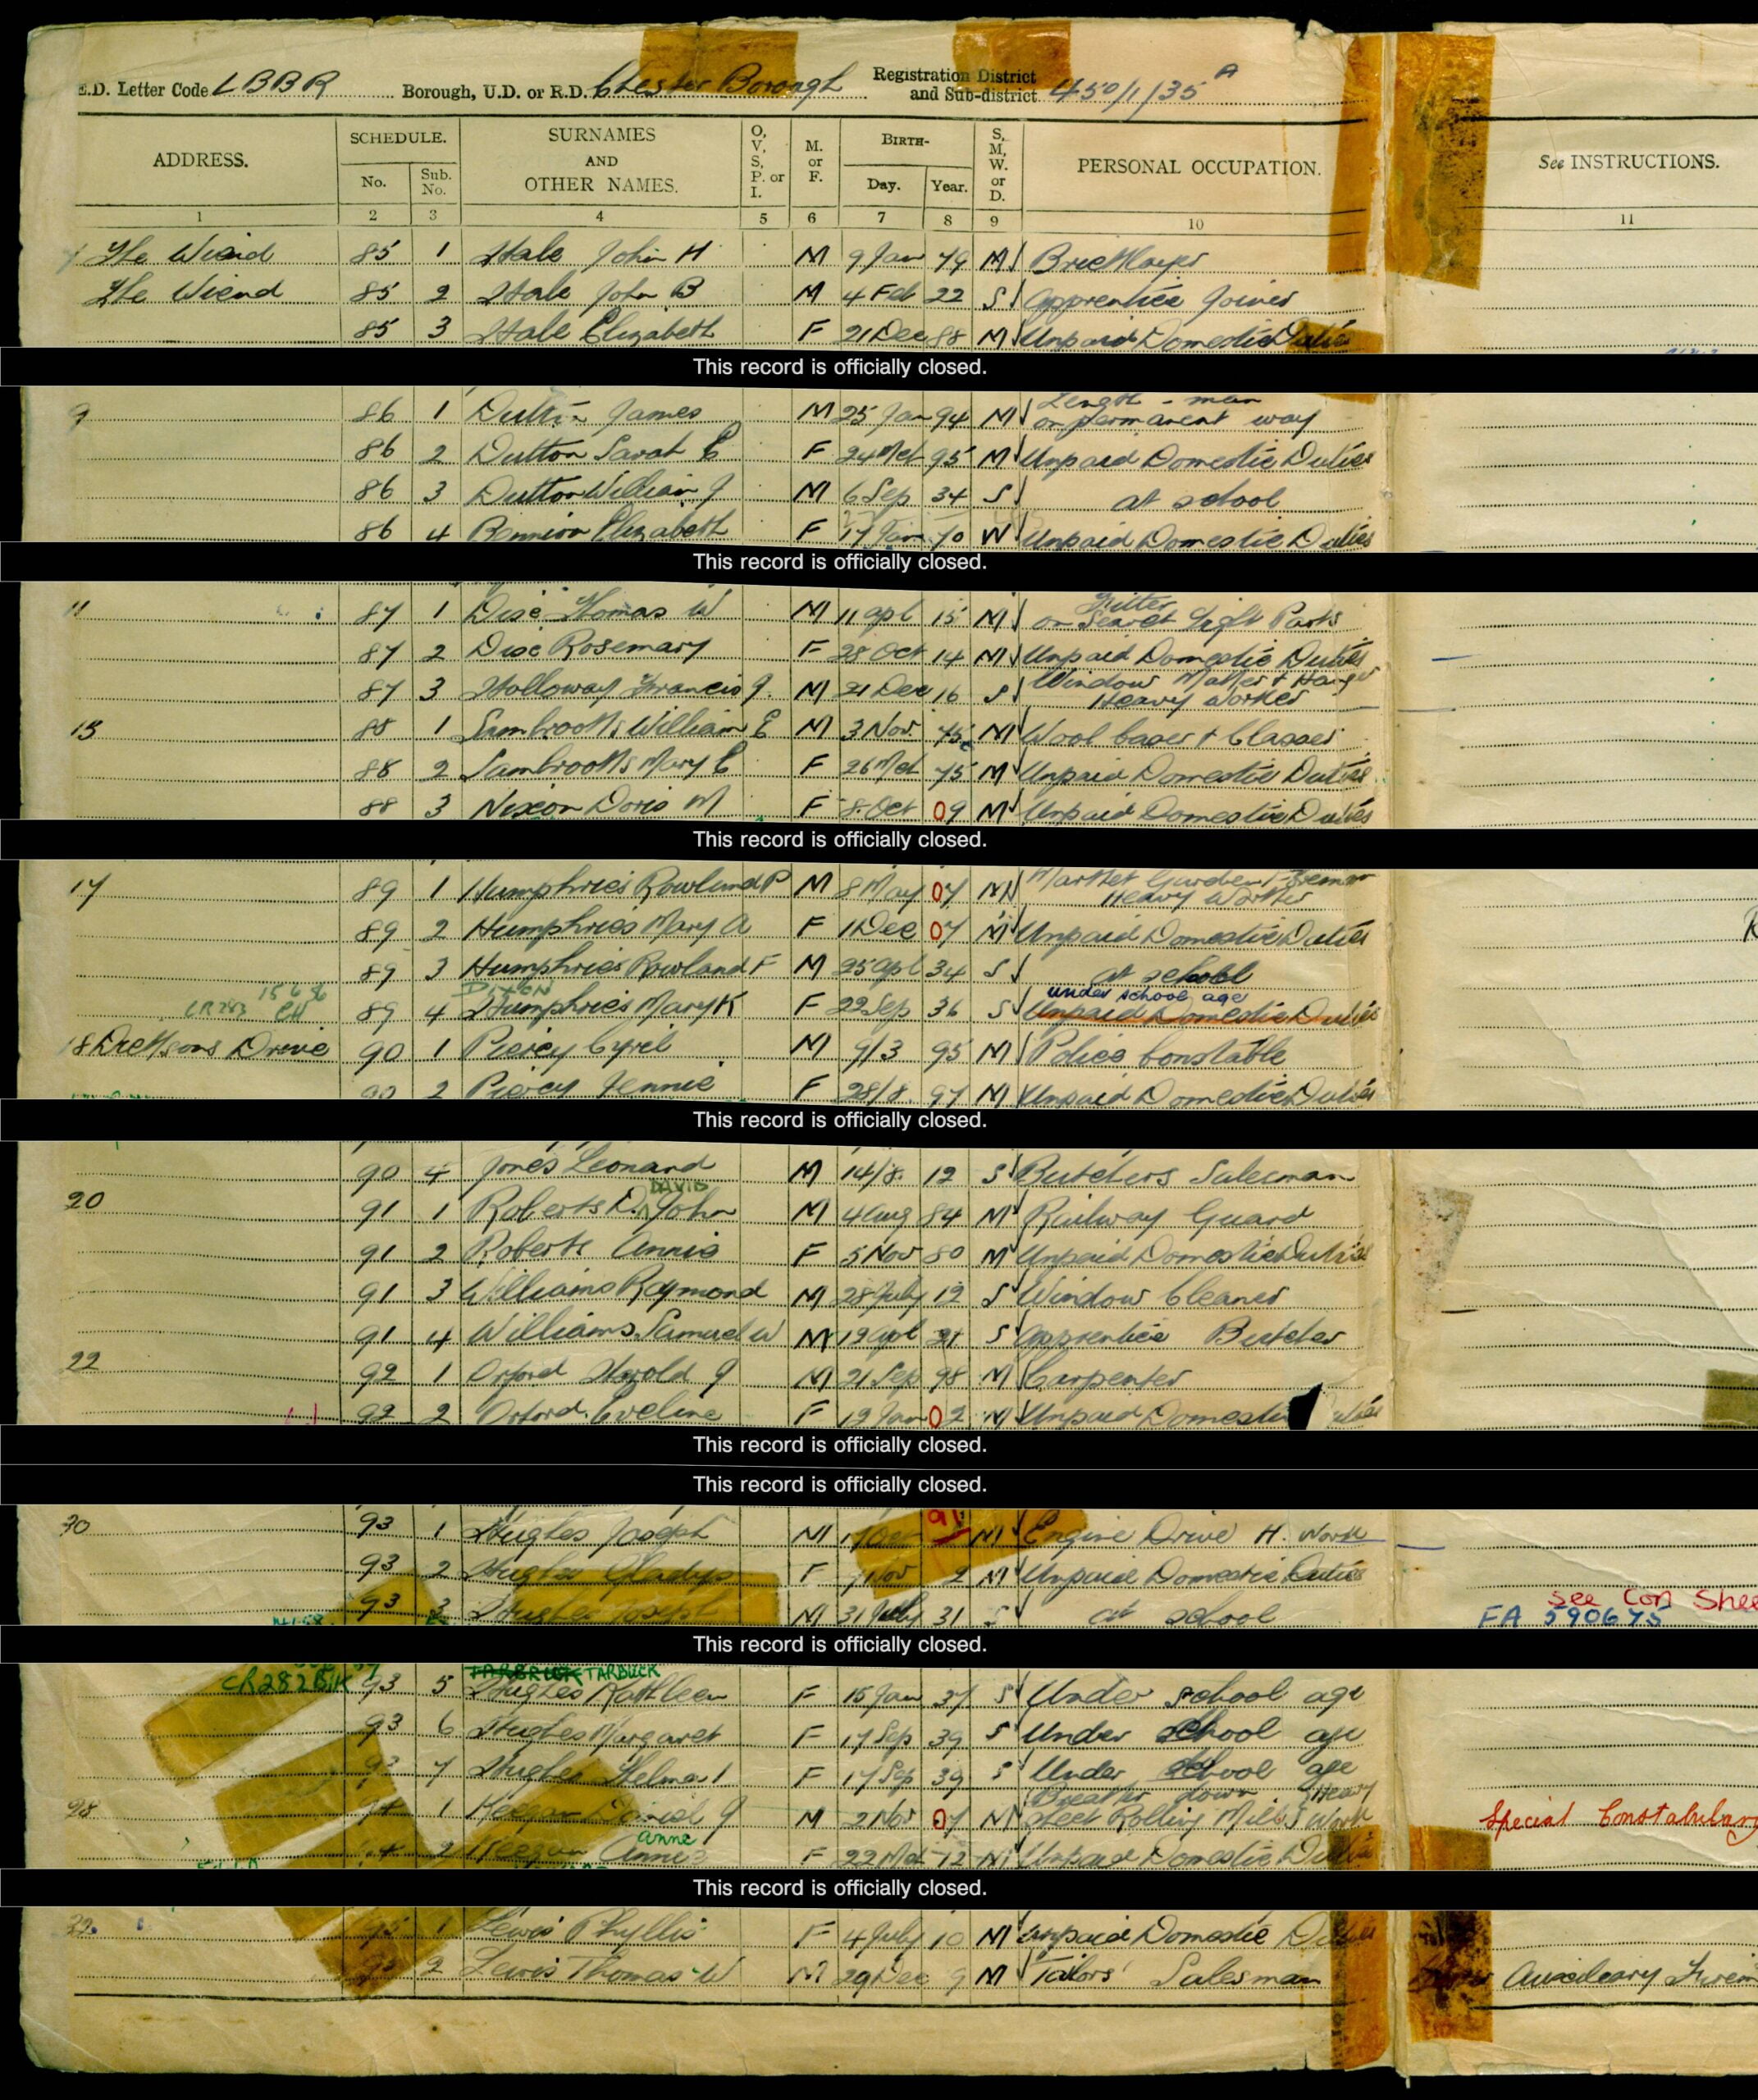 E.D. Letter Code LBBR Borough, U.D. or R.D. Chester Borough Registration District and Sub-district 450/1/35 A
ADDRESS. SCHEDULE. No. Sub. No. SURNAMES AND OTHER NAMES. O, V, S, P. or I. M. or F. BIRTH- Day. Year. S, M, W. or D. PERSONAL OCCUPATION. See INSTRUCTIONS.
1 2 3 4 5 6 7 8 9 10 11
7 The Wiend 85 1 Hale John H M 9 Jan 79 M Bricklayer
The Wiend 85 2 Hale John B M 4 Feb 22 S Apprentice Joiner
85 3 Hale Elizabeth F 21 Dec 88 M Unpaid Domestic Duties
This record is officially closed.
9 86 1 Dutton James M 25 Jan 94 M Length - man on permanent way
86 2 Dutton Sarah E F 24 Mch 95 M Unpaid Domestic Duties
86 3 Dutton William J M 6 Sep 34 S at school
86 4 Bennion Elizabeth F 17 Jan 70 W Unpaid Domestic Duties
This record is officially closed.
11 87 1 Thomas W M 11 Apl 15 M Fitter on Search Light Parts
87 2 Rosemary F 28 Oct 14 M Unpaid Domestic Duties
87 3 Holloway Francis J. M 21 Dec 16 S Window Heavy Worker
15 88 1 Sambrooks William E M 3 Nov. 75 M Wool &
88 2 Sambrooks Mary E F 26 Mch 75 M Unpaid Domestic Duties
88 3 Nixon Doris M F 8 Oct 09 M Unpaid Domestic Duties
This record is officially closed.
17 89 1 Humphries Rowland P M 8 May 07 M Market Gardener Heavy Worker
89 2 Humphries Mary A F 11 Dec 07 M Unpaid Domestic Duties
89 3 Humphries Rowland F M 25 Apl 34 S at school
DIXON under school age
CR283 89 4 Humphries Mary K F 22 Sep 36 S Unpaid Domestic Duties
18 Dicksons Drive 90 1 Piercy Cyril M 9/3 95 M Police Constable
90 2 Piercy Jennie F 28/8 97 M Unpaid Domestic Duties
This record is officially closed.
90 4 Jones Leonard M 14/8. 12 S Butchers Salesman
DAVID
20 91 1 Roberts D. John M 4 Aug 84 M Railway Guard
91 2 Roberts Annie F 5 Nov 80 M Unpaid Domestic Duties
91 3 Williams Raymond M 28 July 12 S Window Cleaner
91 4 Williams Samuel W M 19 Apl 21 S Apprentice Butcher
22 92 1 Orford Harold J M 21 Sep 98 M Carpenter
92 2 Orford Eveline F 12 Jan 02 M Unpaid Domestic Duties
This record is officially closed.
This record is officially closed.
30 93 1 Hughes Joseph M 1 Oct 91 M Engine Drive H. Work
93 2 Hughes Gladys F 1 Nov 2 M Unpaid Domestic Duties
93 3 Hughes Joseph M 31 July 31 S at school See Con Shee
FA 590675
This record is officially closed.
TARBUCK
CR282 93 5 Hughes Kathleen F 15 Jan 37 S Under school age
93 6 Hughes Margaret F 17 Sep 39 S Under school age
93 7 Hughes Thelma F 17 Sep 39 S Under school age
28 94 1 Keegan Daniel J M 2 Nov 07 M Breaker down Sheet Rolling Mills Heavy Work Special Constabulary
Anne
94 2 Keegan Annie F 22 Mch 12 M Unpaid Domestic Duties
This record is officially closed.
32 95 1 Lewis Phyllis F 4 July 10 M Unpaid Domestic Duties
95 2 Lewis Thomas W M 29 Dec 9 M Tailors' Salesman Auxiliary